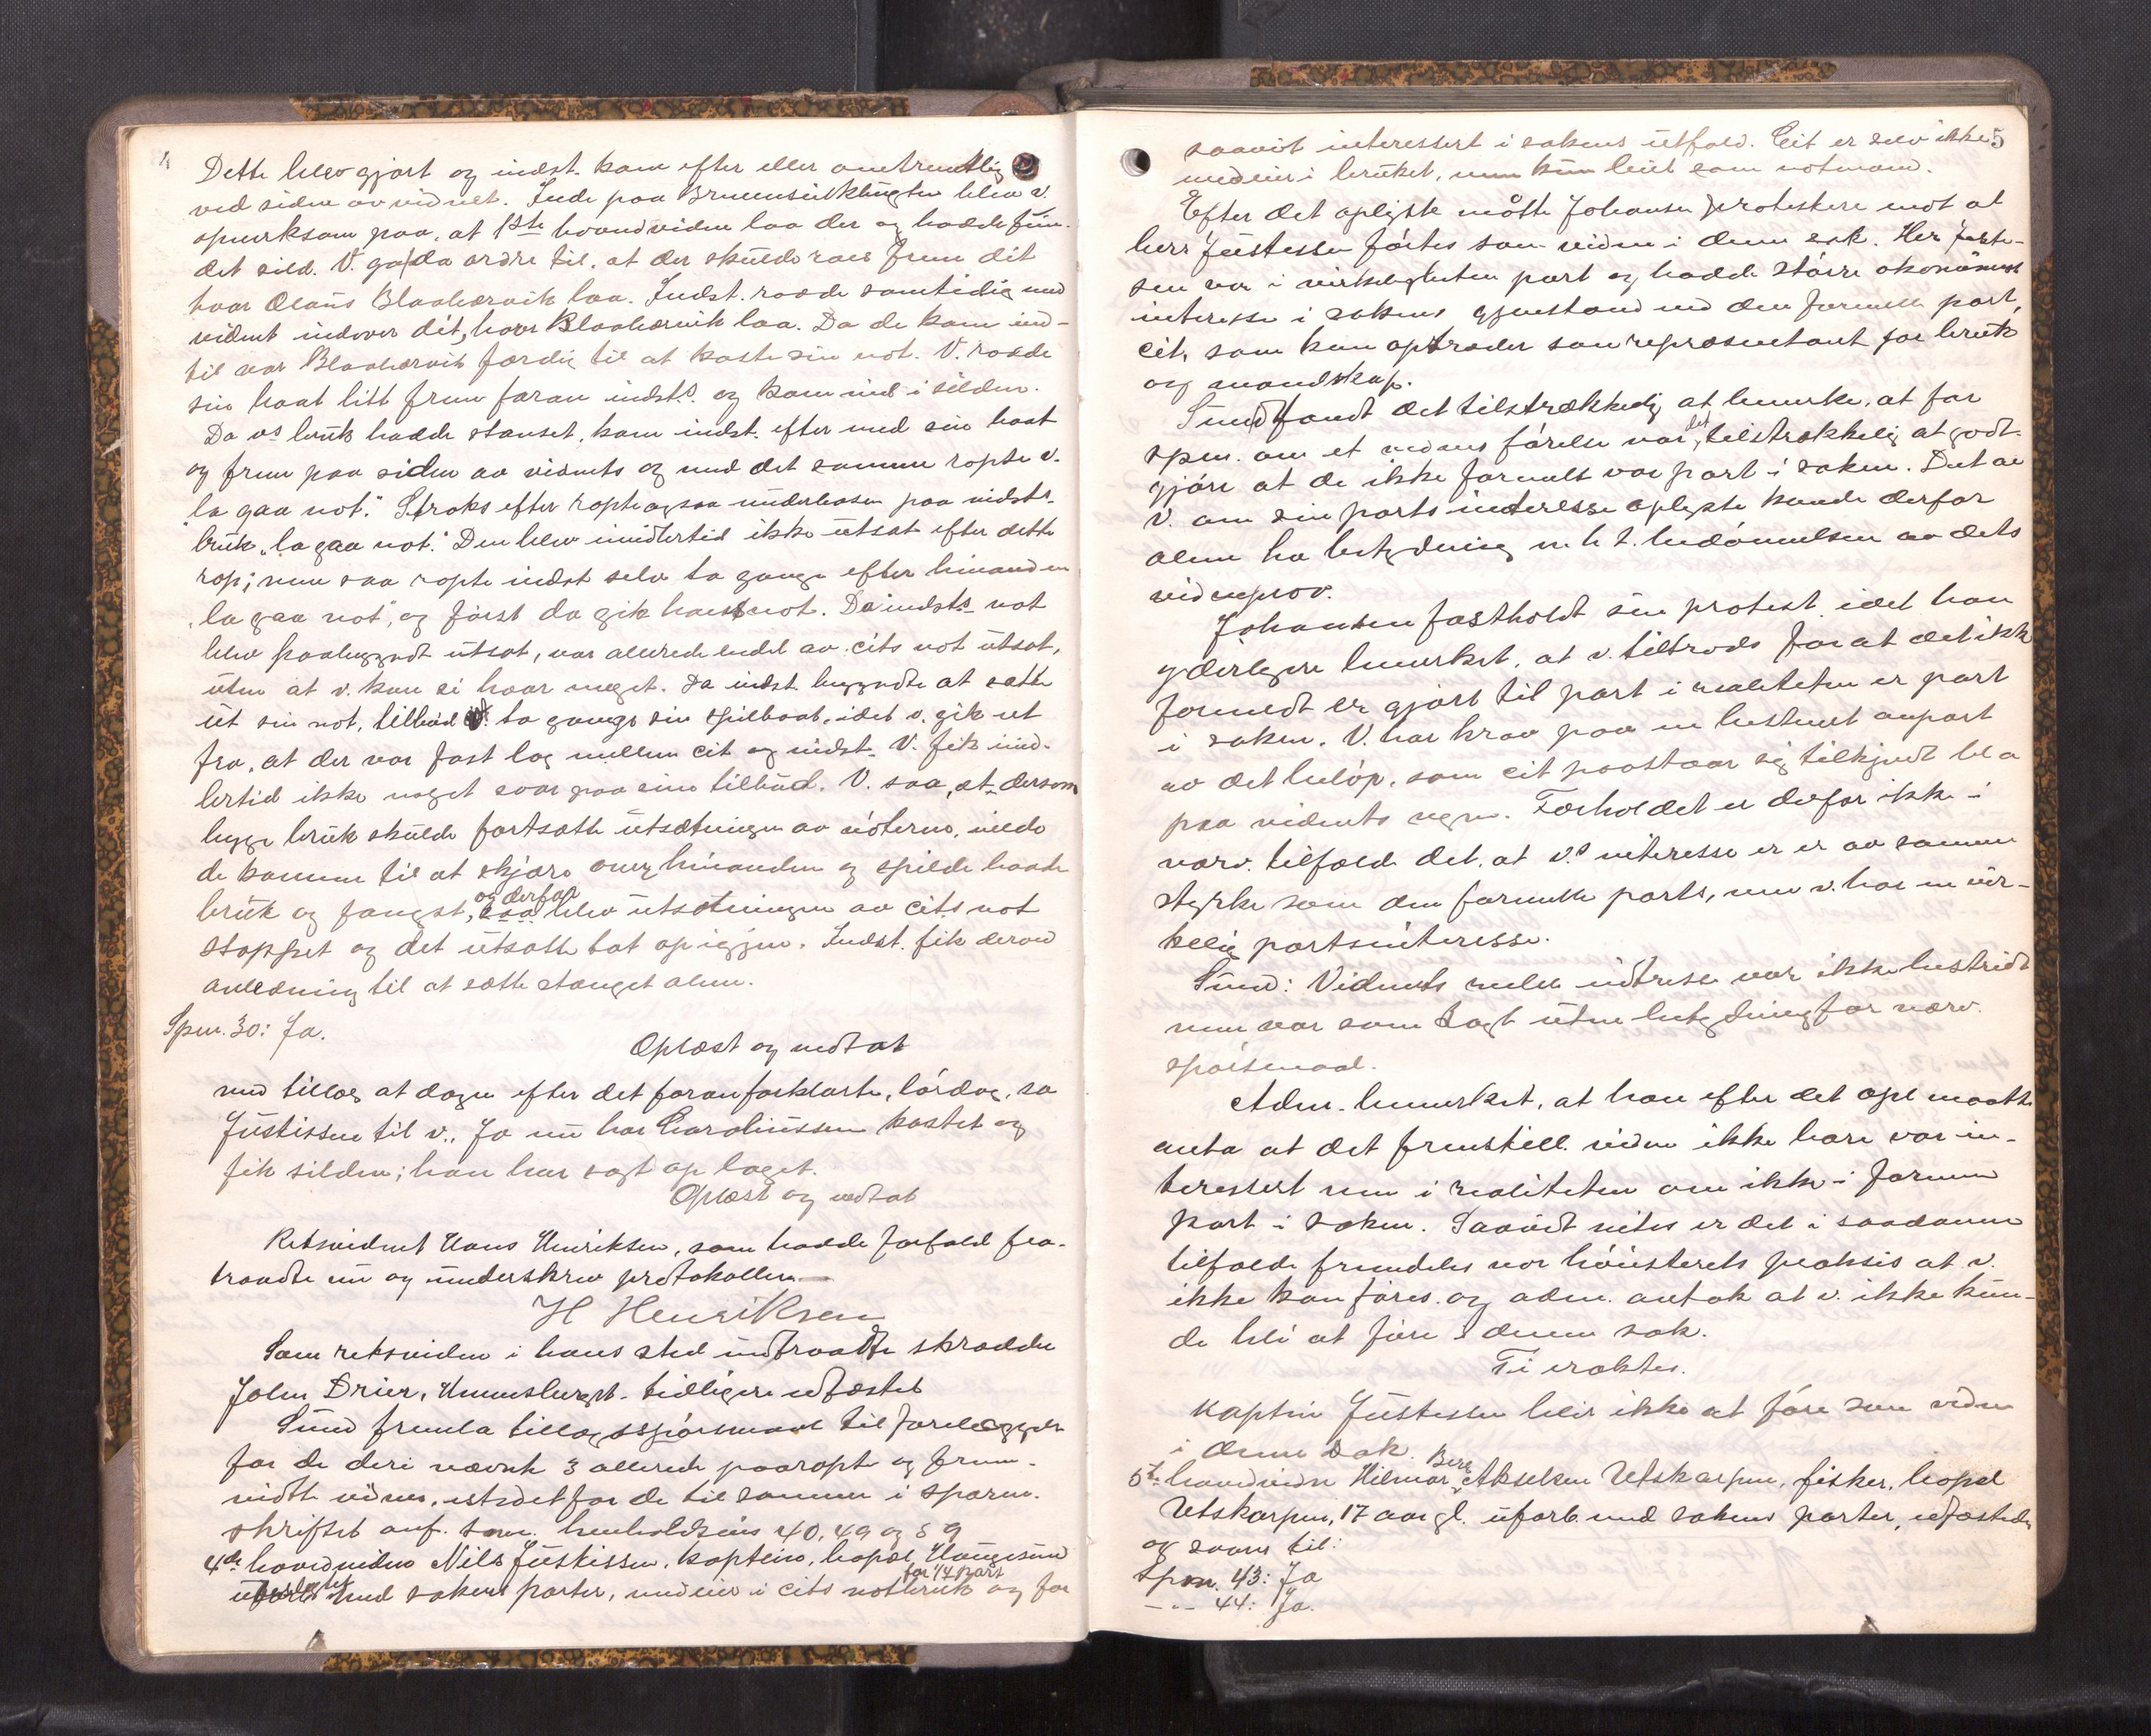 4
Dette blev gjort og indst. kom efter eller omtrentlig
ved siden av vidnet. Inde paa Brunsvikbugten blev v.
opmerksom paa, at 1ste hovedvidne laa der og hadde fun-
det sild. V. ga da ordre til, at der skulde roes frem dit
hvor Olaus Blaahærvik laa. Indst. rodde samtidig med
vidnet indover dit, hvor Blaahærvik laa. Da de kom ind-
til var Blaahærvik færdig til at kaste sin not. V. rodde
sin baat litt frem foran indsts. og kom ind i silden.
Da vs bruk hadde stanset, kom indst. efter med sin baat
og frem paa siden av vidnets og med det samme ropte v.
"la gaa not." Straks efter ropte ogsaa underbasen paa indsts.
bruk "la gaa not." Den blev imidlertid ikke utsat efter dette
rop; men saa ropte indst. selv to gange efter hinanden
"la gaa not", og først da gik hans not. Da indsts. not
blev paabegyndt utsat, var allerede endel av cits not utsat,
uten at v. kan si hvor meget. Da indst. begyndte at sætte
ut sin not, tilbød v. to gange sin spilbaat, idet v. gik ut
fra, at der var fast lag mellem cit og indst. V. fik imid-
lertid ikke noget svar paa sine tilbud. V. saa, at dersom
begge bruk skulde fortsætte utsætningen av nøterne, vilde
de komme til at skjære over hinanden og spilde baade
bruk og fangst, og derfor blev utsætningen av cits not
stoppet og det utsatte tat op igjen. Indst. fik derved
anledning til at sætte stænget alene.
Spm. 30: Ja.
Oplæst og vedtat
med tillæg at dagen efter det foran forklarte, lørdag, sa
Justissen til v., Ja nu har Carolinssen kastet og
fik silden; han har sagt op laget.
Oplæst og vedtat
Retsvidnet Hans Henriksen, som hadde forfald fra-
traadte nu og underskrev protokollen.
H Henriksen
Som retsvidne i hans sted indtraadte skrædder
John Drier, tidligere edfæstet
Sund fremla tillægsspørsmaal til forelæggelse
for de deri nævnte 3 allerede paaropte og frem-
mødte vidner, istedetfor de til samme i spørsm.
skriftet anf. spm. henholdsvis 40, 49 og 59
4de hovedvidne Nils Justissen, kaptein, bopæl Haugesund
ubeslegtet med sakens parter, medeier i cits notbruk for 1/4 part og for
5
saavit interessert i sakens utfald. Cit er selv ikke
medeier i bruket, men kun leiet som notmand.
Efter det oplyste måtte Johansen protestere mot at
herr Justessen førtes som vidne i denne sak. Herr Juste-
sen var i virkeligheten part og hadde større økonomisk
interesse i sakens gjenstand end den formelle part,
cit, som kun optræder som repræsentant for bruk
og mandskap.
Sund fandt det tilstrækkelig at bemerke, at for
spm. om et vidnes førelse var det tilstrækkelig at godt-
gjøre at de ikke formelt var part i saken. Det av
v. om sin partsinteresse oplyste kunde derfor
alene ha betydning m. h. t. bedømmelsen av dets
vidneprov.
Johansen fastholdt sin protest idet han
yderligere bemerket, at v. tiltrods for at det ikke
formelt er gjort til part i realiteten er part
i saken. V. har krav paa en bestemt anpart
av det beløp, som cit paastaar sig tilkjendt bl a
paa vidnets vegne. Forholdet er derfor ikke i
nærv. tilfælde det, at vs interesse er er av samme
styrke som den formelle parts, men v. har en vir-
kelig partsinteresse.
Sund: Vidnets reelle intresse var ikke bestridt
men var som sagt uten betydning for nærv.
spørsmaal.
Adm. bemerket, at han efter det opl maatte
anta at det fremstill. vidne ikke bare var in-
teressert men i realiteten om ikke i formen
part i saken. Saavidt vites er det i saadanne
tilfælde fremdeles vor høiesterets praksis at v.
ikke kan føres og adm. antok at v. ikke kun-
de bli at føre i denne sak.
Ti eraktes.
Kaptein Justessen blir ikke at føre som vidne
i denne sak.
5te hovedvidne Hilmar Berg Akselsen Utskarpen, fisker, bopæl
Utskarpen, 17 aar gl. ubesl. med sakens parter, edfæstedes
og svarer til:
Spm. 43: Ja
--- 44: Ja.